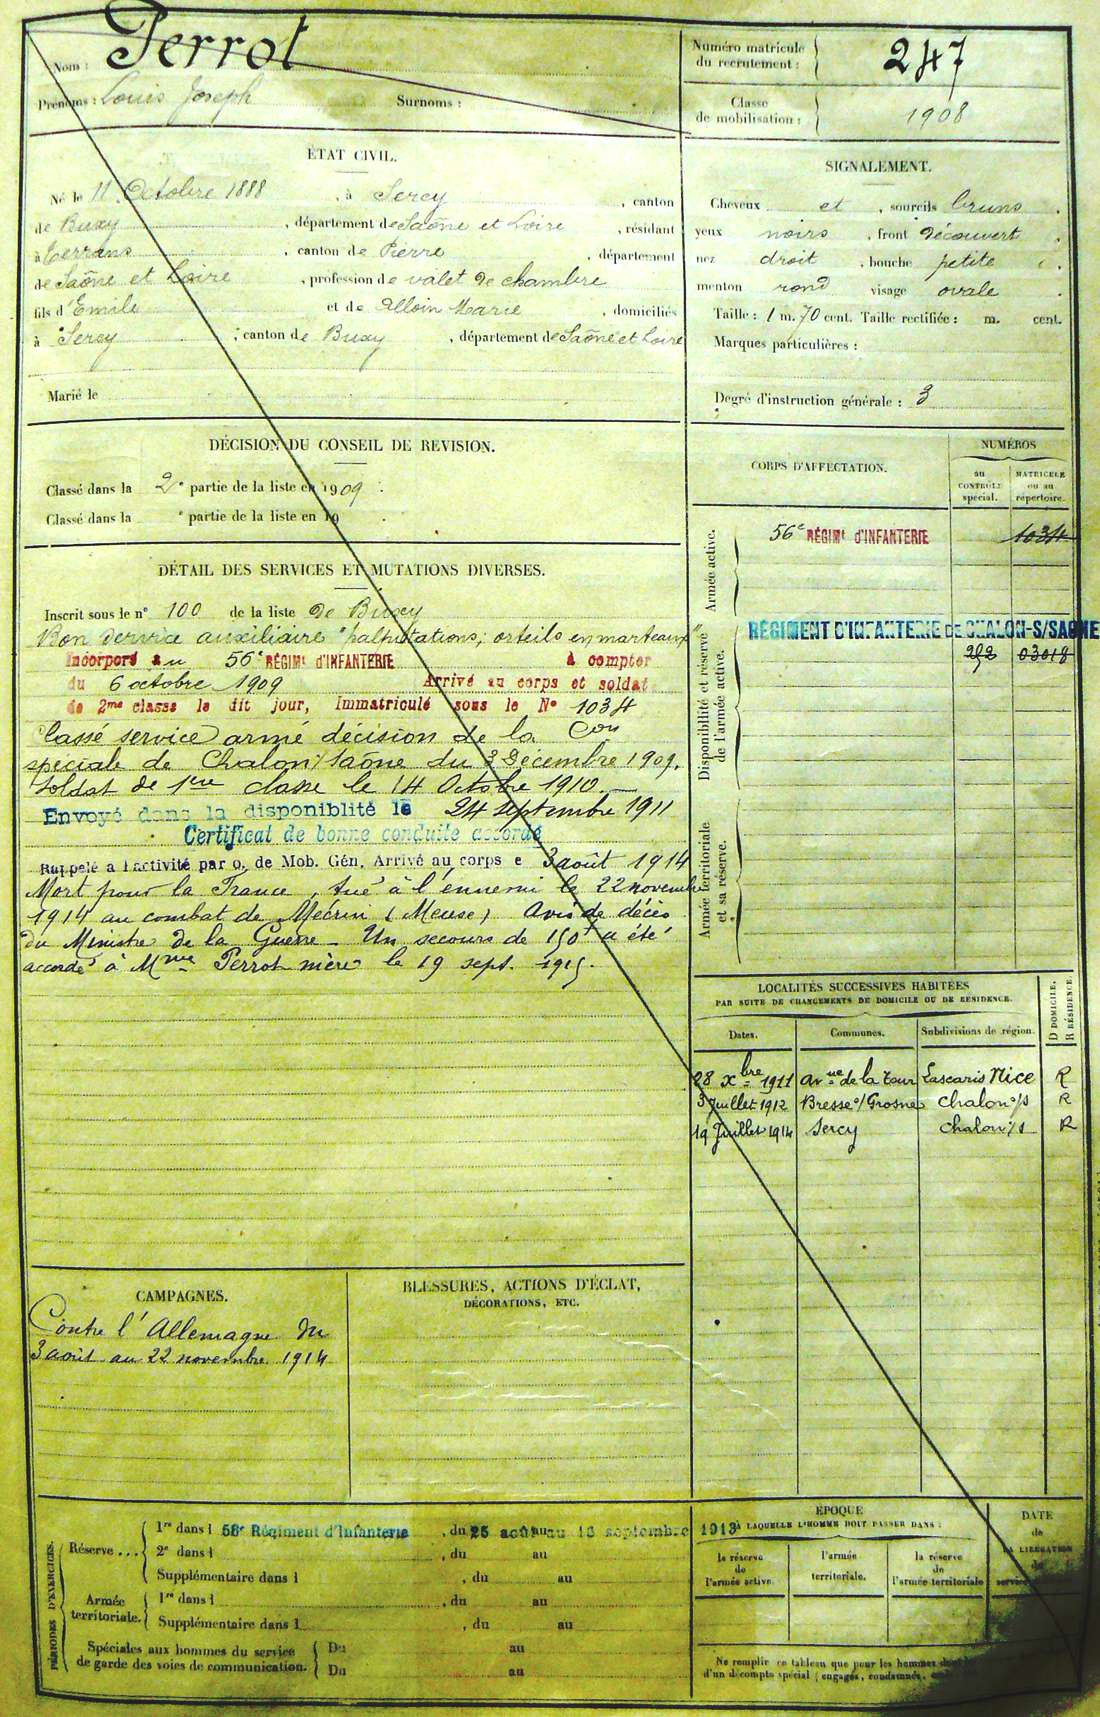 Nom : Perrot
Prénoms : Louis Joseph Surnoms :
Numéro matricule du recrutement : 247
Classe de mobilisation : 1908
ÉTAT CIVIL.
Né le 11 Octobre 1888, à Sercy, canton
de Buxy, département de Saône et Loire, résidant
à Terrans, canton de Pierre, département
de Saône et Loire, profession de valet de chambre
fils d'Emile et de Alloin Marie, domiciliés
à Sercy, canton de Buxy, département de Saône et Loire
Marié le
SIGNALEMENT.
Cheveux et, sourcils bruns.
yeux noirs, front découvert.
nez droit, bouche petite.
menton rond visage ovale.
Taille : 1 m. 70 cent. Taille rectifiée : m. cent.
Marques particulières :
Degré d'instruction générale : 3
DÉCISION DU CONSEIL DE REVISION.
Classé dans la 2e partie de la liste en 1909.
Classé dans la e partie de la liste en 19 .
DÉTAIL DES SERVICES ET MUTATIONS DIVERSES.
Inscrit sous le n° 100 de la liste de Buxy
Bon service auxiliaire "palpitations; orteils en marteaux"
Incorporé au 56e RÉGIMt d'INFANTERIE à compter
du 6 octobre 1909 Arrivé au corps et soldat
de 2me classe le dit jour, Immatriculé sous le N° 1034
Classé service armé décision de la Con
spéciale de Chalon s/ Saône du 3 Décembre 1909.
Soldat de 1ere classe le 14 Octobre 1910.
Envoyé dans la disponiblité le 24 septembre 1911
Certificat de bonne conduite accordé
Rappelé à l'activité par o. de Mob. Gén. Arrivé au corps e 3 août 1914
Mort pour la France, tué à l'ennemi le 22 novembre
1914 au combat de Mécrin (Meuse) Avis de décès
du Ministre de la Guerre - Un secours de 150f a été
accordé à Mme Perrot mère le 19 sept. 1915.
CORPS D'AFFECTATION.
NUMÉROS
au CONTRÔLE spécial.
MATRICULE ou au répertoire.
Armée active.
56e RÉGIMt d'INFANTERIE 1034
Disponibilité et réserve de l'armée active.
RÉGIMENT D'INFANTERIE DE CHALON-S/SAONE
252 03018
Armée territoriale et sa réserve.
LOCALITÉS SUCCESSIVES HABITÉES
PAR SUITE DE CHANGEMENTS DE DOMICILE OU DE RÉSIDENCE.
Dates. Communes. Subdivisions de région. D DOMICILE. R RÉSIDENCE.
28 Xbre 1911 avue de la Tour Lascaris Nice R
3 Juillet 1912 Bresse s/ Grosne Chalon s/s R
19 Juillet 1914 Sercy Chalon s/s R
CAMPAGNES.
Contre l'Allemagne du
3 août au 22 novembre 1914
BLESSURES, ACTIONS D'ÉCLAT,
DÉCORATIONS, ETC.
PÉRIODES D'EXERCICES.
Réserve ...
1re dans l 56e Régiment d'Infanterie, du 25 août au 16 septembre 1913
2e dans l , du au
Supplémentaire dans l , du au
Armée territoriale.
1re dans l , du au
Supplémentaire dans l , du au
Spéciales aux hommes du service de garde des voies de communication.
Du au
Du au
EPOQUE
À LAQUELLE L'HOMME DOIT PASSER DANS :
la réserve de l'armée active.
l'armée territoriale.
la réserve de l'armée territoriale
DATE
de
LA LIBÉRATION
du
service
Ne remplir ce tableau que pour les hommes
d'un décompte spécial (engagés, condamnés,